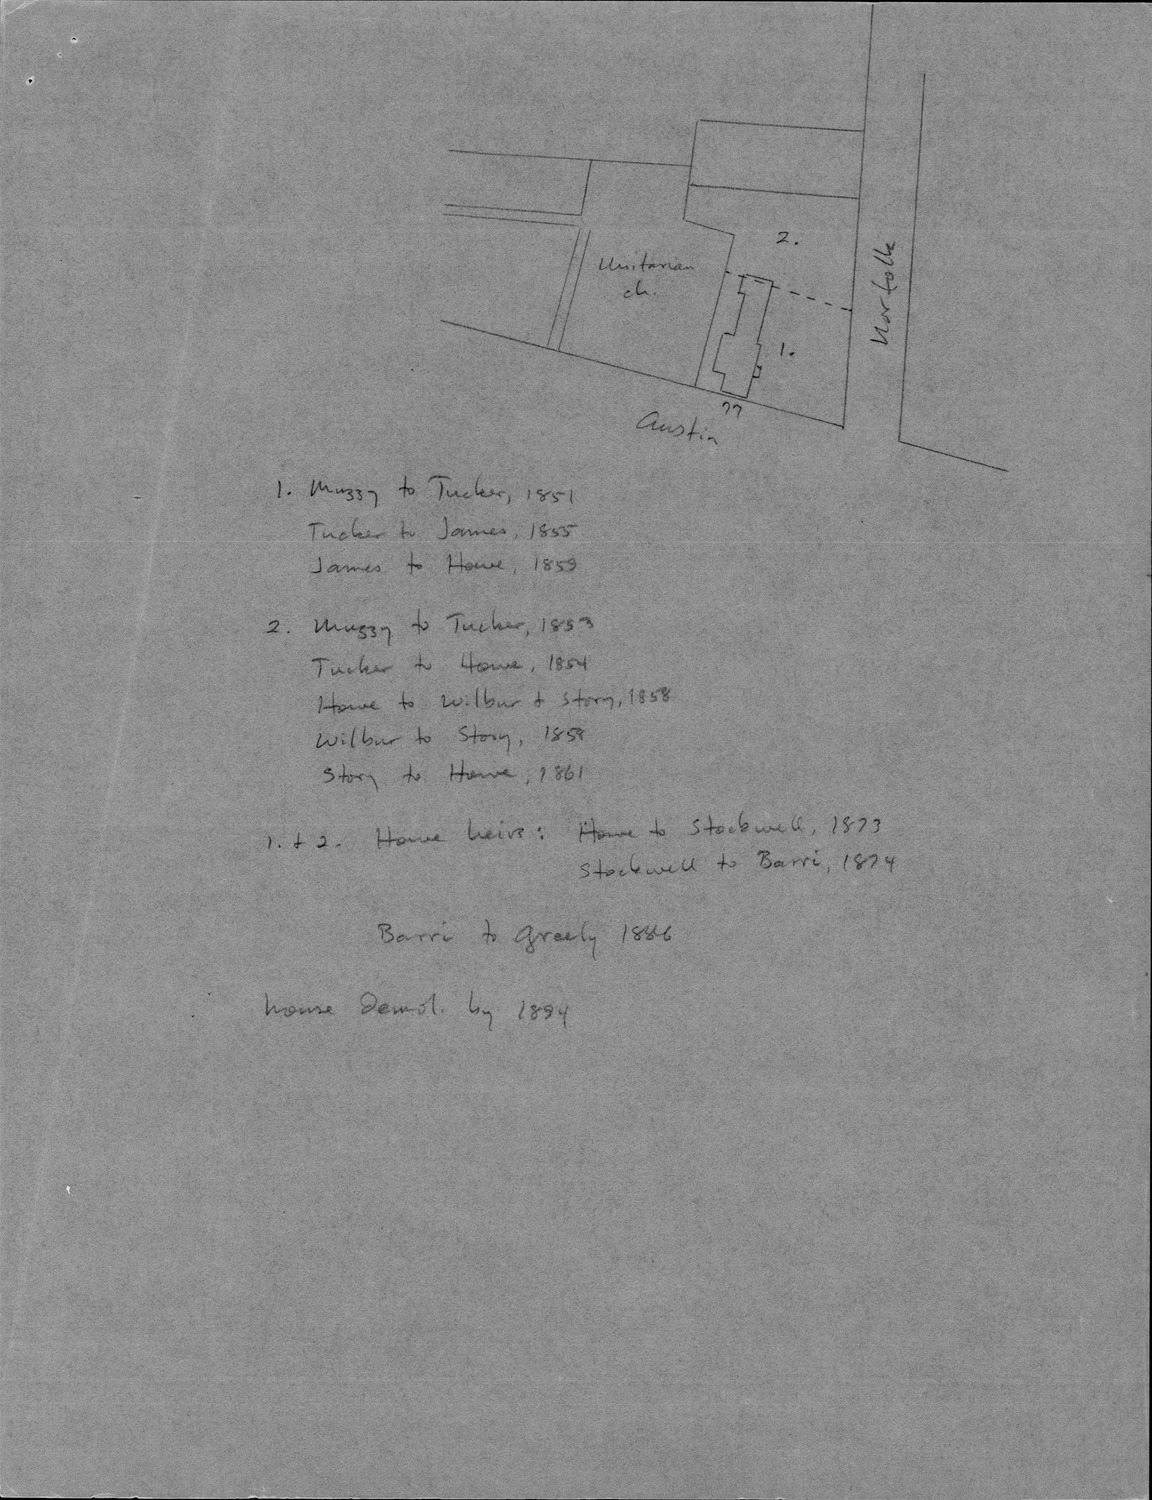 2.
Unitarian
ch.
Norfolk
1.
77
Austin
1. Muzzy to Tucker, 1851
Tucker to James, 1855
James to Howe, 1859
2. Muzzy to Tucker, 1853
Tucker to Howe, 1854
Howe to Wilbur & Story, 1858
Wilbur to Story, 1859
Story to Howe, 1861
1. & 2. Howe heirs: Howe to Stockwell, 1873
Stockwell to Barri, 1874
Barri to Greely 1886
house demol. by 1894